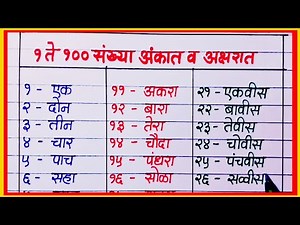 १ ते १०० संख्या अंकात व अक्षरात
१ - एक ११ - अकरा २१ - एकवीस
२ - दोन १२ - बारा २२ - बावीस
३ - तीन १३ - तेरा २३ - तेवीस
४ - चार १४ - चौदा २४ - चोवीस
५ - पाच १५ - पंधरा २५ - पंचवीस
६ - सहा १६ - सोळा २६ - सव्वीस